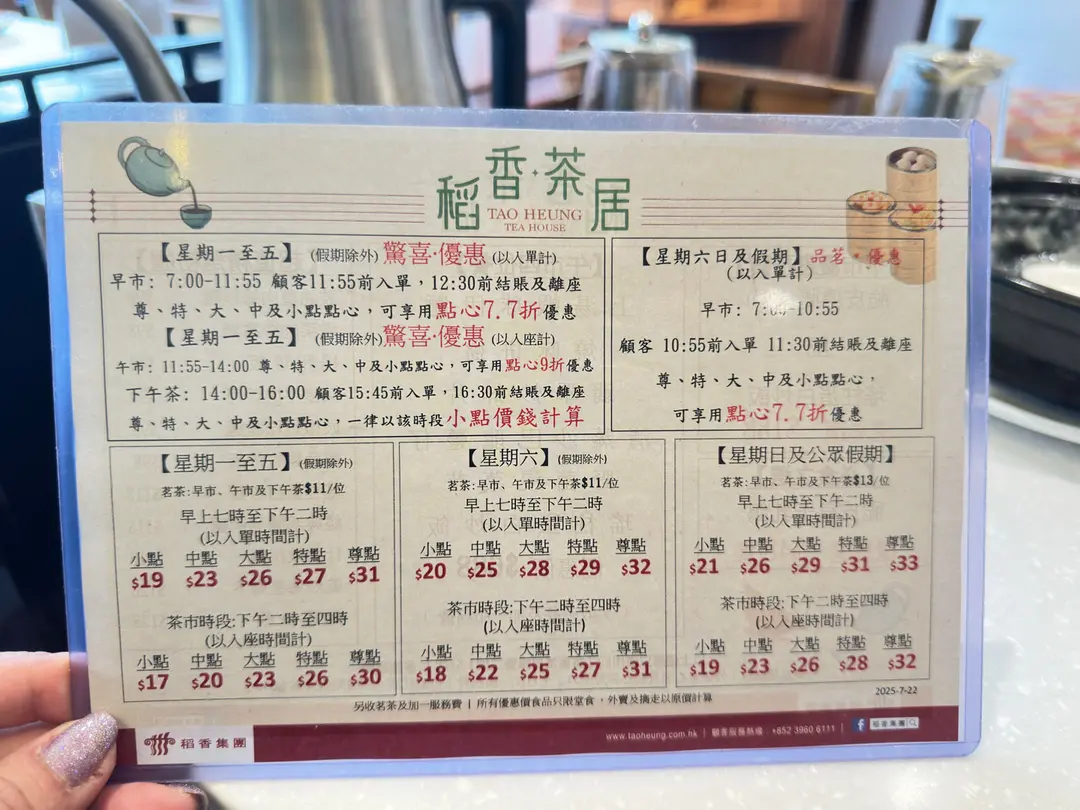 稻香·茶居
TAO HEUNG
TEA HOUSE
【星期一至五】(假期除外)驚喜·優惠(以入單計)
早市: 7:00-11:55 顧客11:55前入單，12:30前結賬及離座
尊、特、大、中及小點點心，可享用點心7.7折優惠
【星期一至五】(假期除外)驚喜·優惠(以入座計)
午市: 11:55-14:00 尊、特、大、中及小點點心，可享用點心9折優惠
下午茶: 14:00-16:00 顧客15:45前入單，16:30前結賬及離座
尊、特、大、中及小點點心，一律以該時段小點價錢計算
【星期六日及假期】品茗·優惠
(以入單計)
早市: 7:00-10:55
顧客 10:55前入單 11:30前結賬及離座
尊、特、大、中及小點點心，
可享用點心7.7折優惠
【星期一至五】(假期除外)
茗茶:早市、午市及下午茶$11/位
早上七時至下午二時
(以入單時間計)
小點 中點 大點 特點 尊點
$19 $23 $26 $27 $31
茶市時段:下午二時至四時
(以入座時間計)
小點 中點 大點 特點 尊點
$17 $20 $23 $26 $30
【星期六】(假期除外)
茗茶:早市、午市及下午茶$11/位
早上七時至下午二時
(以入單時間計)
小點 中點 大點 特點 尊點
$20 $25 $28 $29 $32
茶市時段:下午二時至四時
(以入座時間計)
小點 中點 大點 特點 尊點
$18 $22 $25 $27 $31
【星期日及公眾假期】
茗茶:早市、午市及下午茶$13/位
早上七時至下午二時
(以入單時間計)
小點 中點 大點 特點 尊點
$21 $26 $29 $31 $33
茶市時段:下午二時至四時
(以入座時間計)
小點 中點 大點 特點 尊點
$19 $23 $26 $28 $32
另收茗茶及加一服務費 | 所有優惠價食品只限堂食，外賣及攜走以原價計算
2025-7-22
稻香集團
www.taoheung.com.hk | 顧客服務熱線 +852 3960 6111 | f 稻香集團